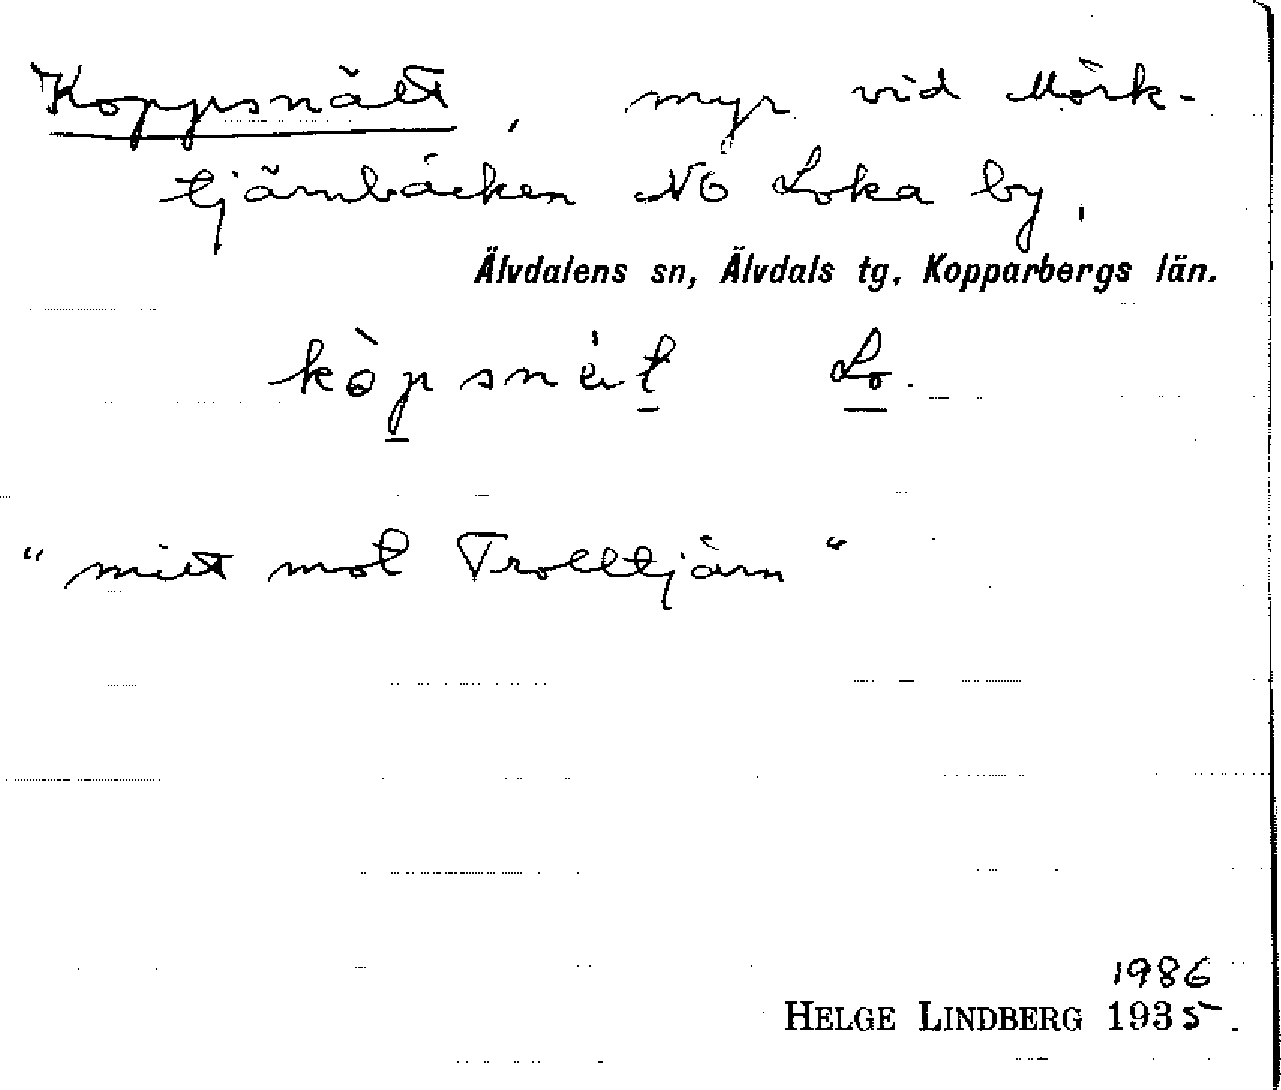 Koppsnätt, myr vid Mörk-
tjärnbäcken NÖ Loka by,
Älvdalens sn, Älvdals tg, Kopparbergs län.
Lo.
"mitt mot Trolltjärn"
1986
HELGE LINDBERG 1935.